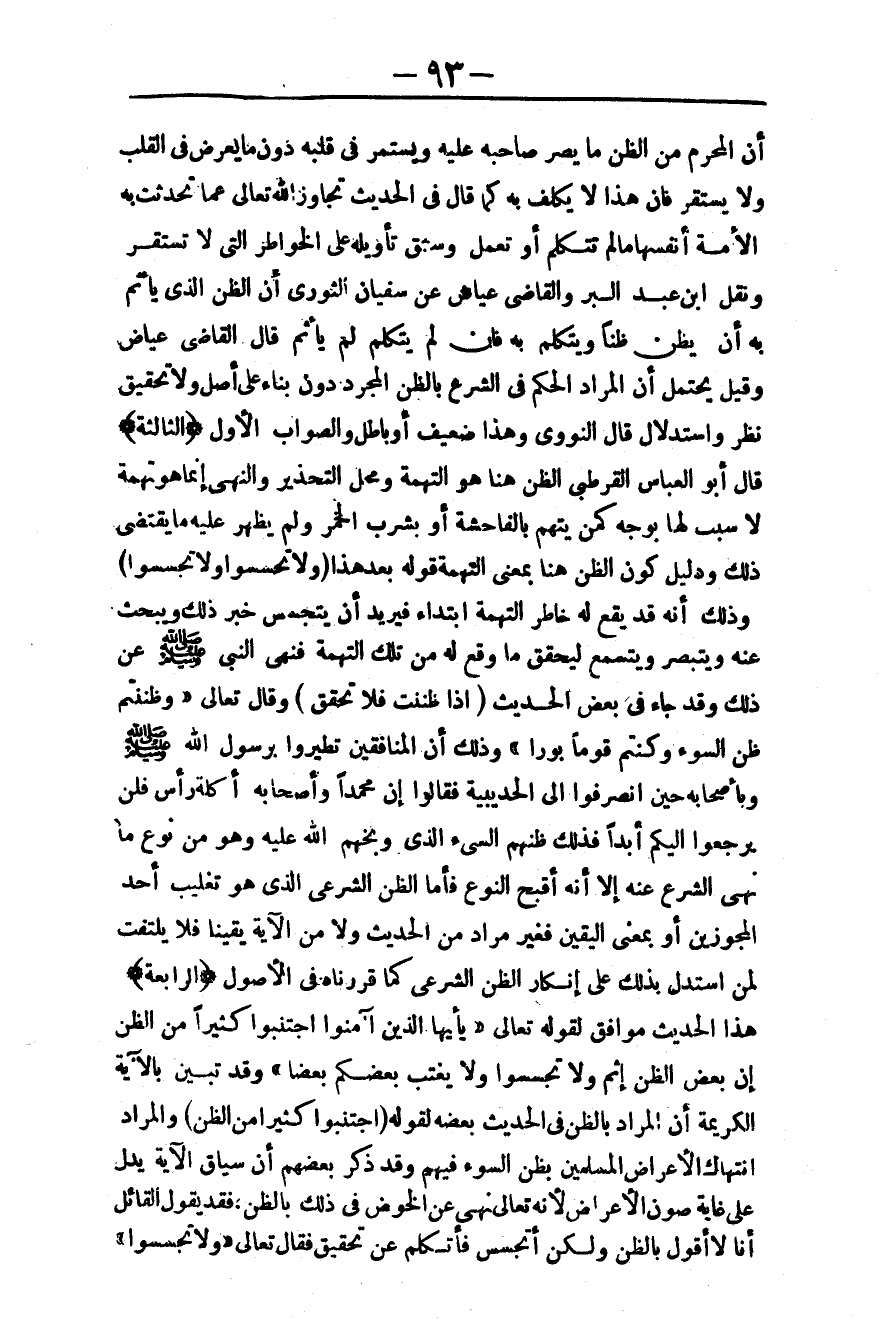 — ٩٣ —
أن المحرم من الظن ما يصر صاحبه عليه ويستمر فى قلبه دون ما يعرض فى القلب
ولا يستقر فان هذا لا يكلف به كما قال فى الحديث تجاوز الله تعالى عما تحدثت به
الأمــة أنفسها مالم تتــكلم أو تعمل وسبق تأويله على الخواطر التى لا تستقــر
ونقل ابن عبــد البر والقاضى عياض عن سفيان الثورى أن الظن الذى يأثم
به أن يظن ظناً ويتكلم به فان لم يتكلم لم يأثم قال القاضى عياض
وقيل يحتمل أن المراد الحكم فى الشرع بالظن المجرد دون بناء على أصل ولا تحقيق
نظر واستدلال قال النووى وهذا ضعيف أو باطل والصواب الأول ﴿الثالثة﴾
قال أبو العباس القرطبي الظن هنا هو التهمة ومحل التحذير والنهى إنما هو تهمة
لا سبب لها بوجه كمن يتهم بالفاحشة أو بشرب الخمر ولم يظهر عليه ما يقتضى
ذلك ودليل كون الظن هنا بمعنى التهمة قوله بعد هذا (ولا تحسسوا ولا تجسسوا)
وذلك أنه قد يقع له خاطر التهمة ابتداء فيريد أن يتجسس خبر ذلك ويبحث
عنه ويتبصر ويتسمع ليحقق ما وقع له من تلك التهمة فنهى النبي ﷺ عن
ذلك وقد جاء فى بعض الحــديث ( اذا ظننت فلا تحقق ) وقال تعالى « وظننتم
ظن السوء وكنتم قوماً بورا » وذلك أن المنافقين تطيروا برسول الله ﷺ
وبأصحابه حين انصرفوا الى الحديبية فقالوا إن محمداً وأصحابه أكلة رأس فلن
يرجعوا اليكم أبداً فذلك ظنهم السىء الذى وبخهم الله عليه وهو من نوع ما
نهــى الشرع عنه إلا أنه أقبح النوع فأما الظن الشرعى الذى هو تغليب أحد
المجوزين أو بمعنى اليقين فغير مراد من الحديث ولا من الآية يقينا فلا يلتفت
لمن استدل بذلك على إنــكار الظن الشرعى كما قررناه فى الأصول ﴿الرابعة﴾
هذا الحديث موافق لقوله تعالى « يأيها الذين آمنوا اجتنبوا كثيراً من الظن
إن بعض الظن إثم ولا تجسسوا ولا يغتب بعضــكم بعضا » وقد تبــين بالآية
الكريمة أن المراد بالظن فى الحديث بعضه لقوله (اجتنبوا كثيرا من الظن) والمراد
انتهاك الأعراض المسلمين بظن السوء فيهم وقد ذكر بعضهم أن سياق الآية يدل
على غاية صون الأعراض لأنه تعالى نهــى عن الخوض فى ذلك بالظن ؛ فقد يقول القائل
أنا لا أقول بالظن ولــكن أتجسس فأتــكلم عن تحقيق فقال تعالى «ولا تجسسوا»